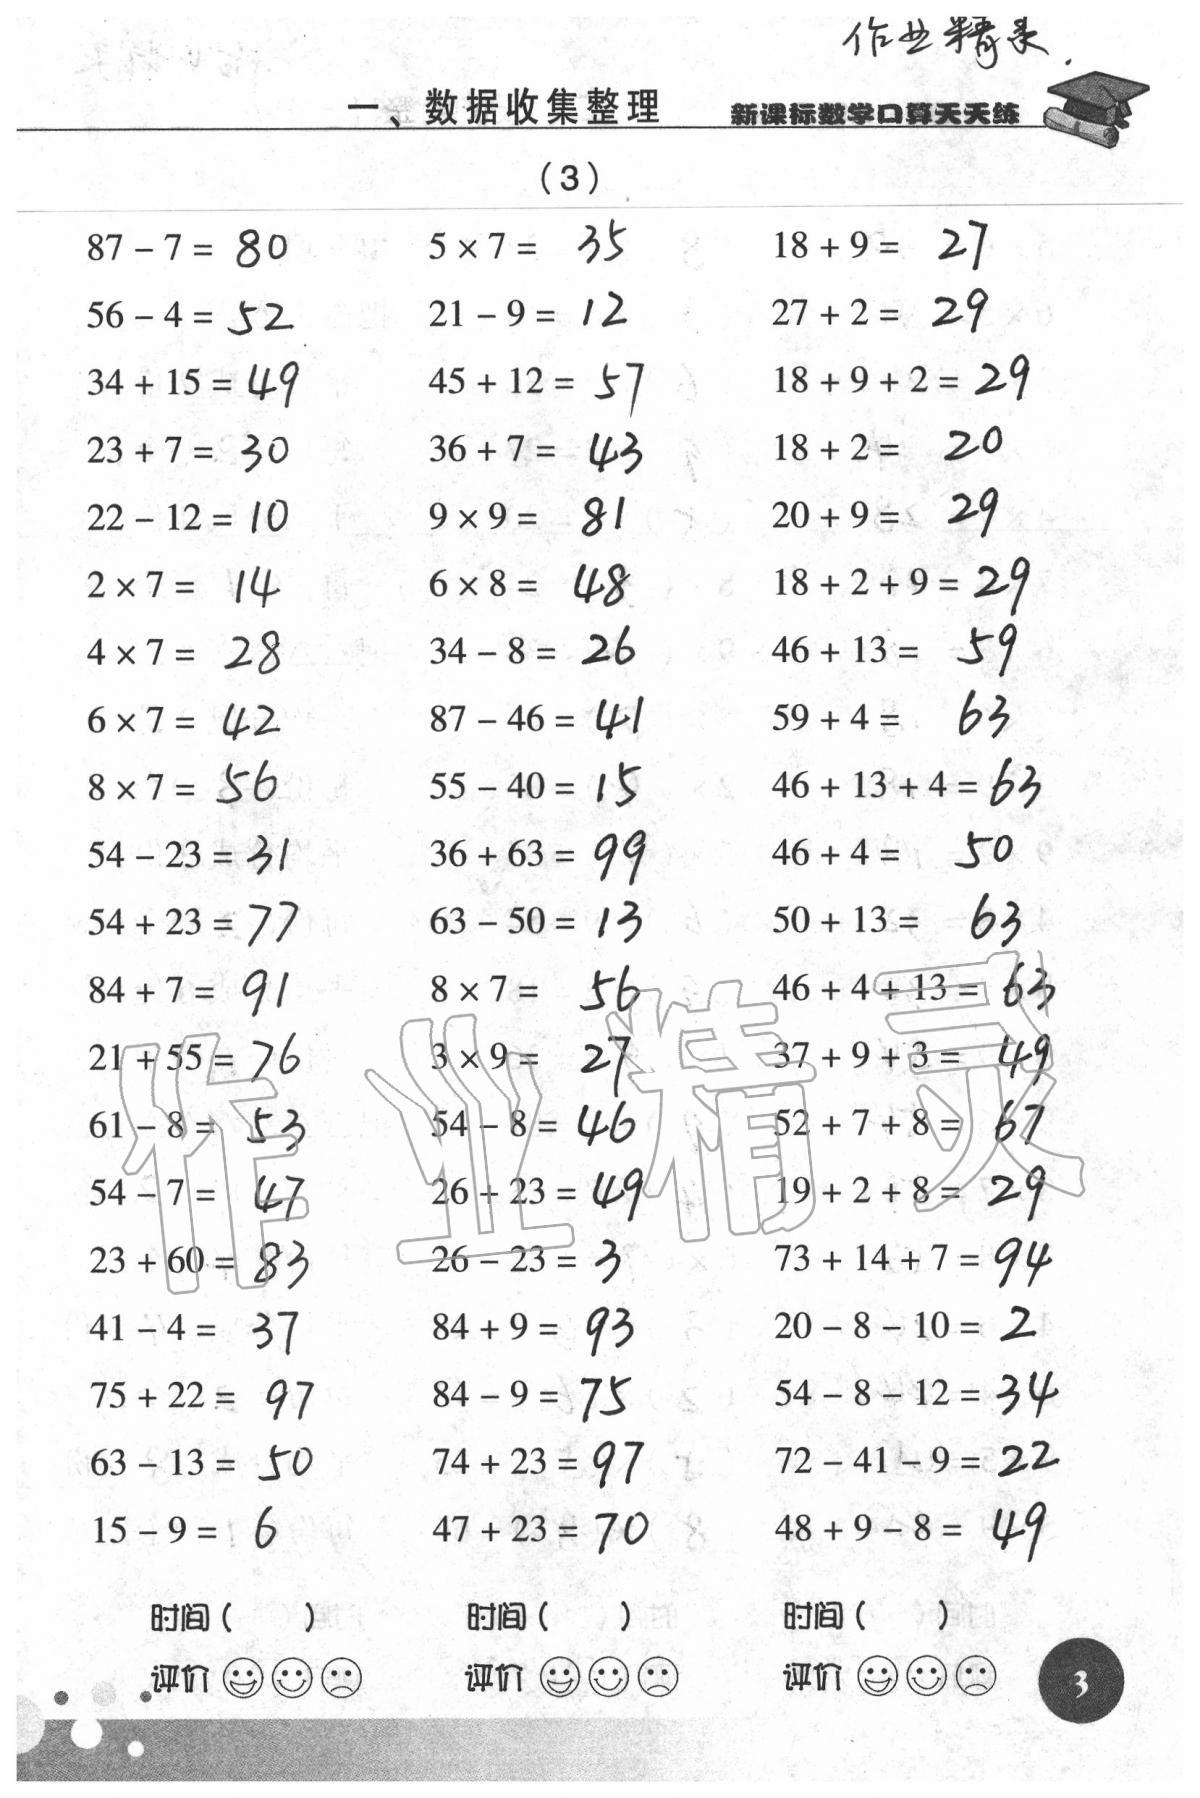 作业精灵
一、数据收集整理 新课标数学口算天天练
(3)
87 − 7 = 80 5 × 7 = 35 18 + 9 = 27
56 − 4 = 52 21 − 9 = 12 27 + 2 = 29
34 + 15 = 49 45 + 12 = 57 18 + 9 + 2 = 29
23 + 7 = 30 36 + 7 = 43 18 + 2 = 20
22 − 12 = 10 9 × 9 = 81 20 + 9 = 29
2 × 7 = 14 6 × 8 = 48 18 + 2 + 9 = 29
4 × 7 = 28 34 − 8 = 26 46 + 13 = 59
6 × 7 = 42 87 − 46 = 41 59 + 4 = 63
8 × 7 = 56 55 − 40 = 15 46 + 13 + 4 = 63
54 − 23 = 31 36 + 63 = 99 46 + 4 = 50
54 + 23 = 77 63 − 50 = 13 50 + 13 = 63
84 + 7 = 91 8 × 7 = 56 46 + 4 + 13 = 63
21 + 55 = 76 3 × 9 = 27 37 + 9 + 3 = 49
61 − 8 = 53 54 − 8 = 46 52 + 7 + 8 = 67
54 − 7 = 47 26 + 23 = 49 19 + 2 + 8 = 29
23 + 60 = 83 26 − 23 = 3 73 + 14 + 7 = 94
41 − 4 = 37 84 + 9 = 93 20 − 8 − 10 = 2
75 + 22 = 97 84 − 9 = 75 54 − 8 − 12 = 34
63 − 13 = 50 74 + 23 = 97 72 − 41 − 9 = 22
15 − 9 = 6 47 + 23 = 70 48 + 9 − 8 = 49
作业精灵
时间( ) 时间( ) 时间( )
评价 评价 评价
3